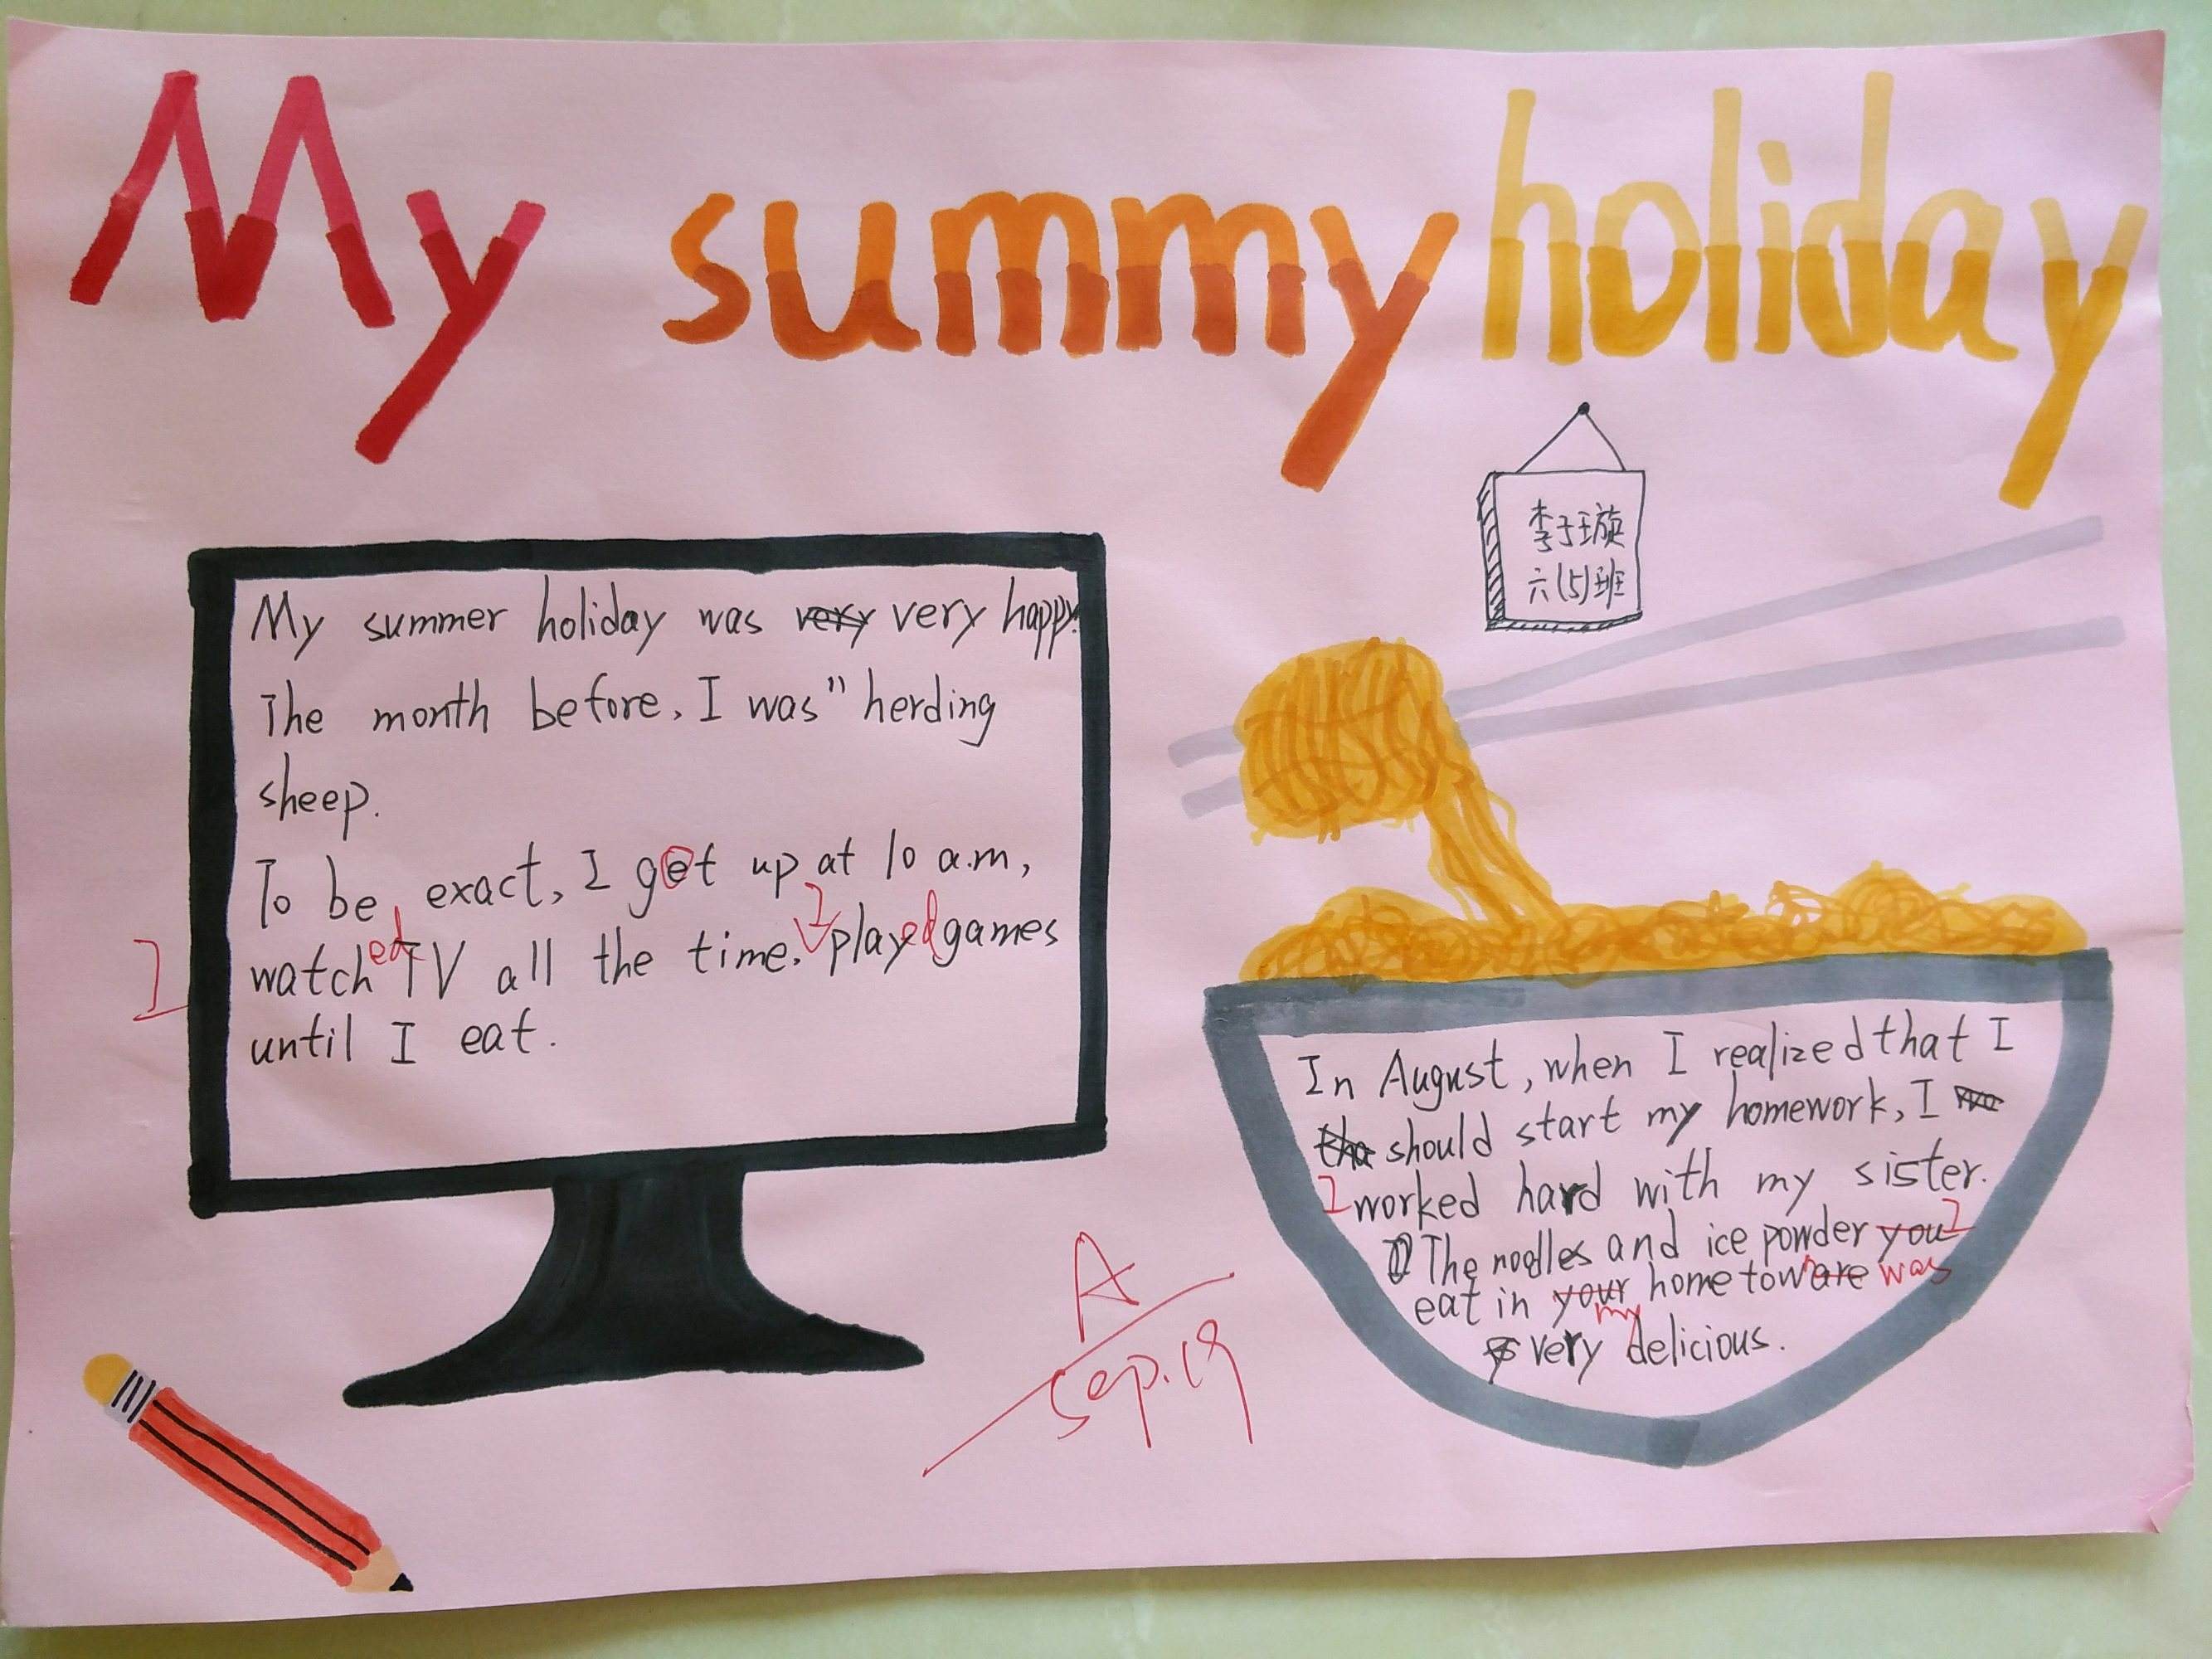 My summy holiday
李子璇
六(5)班
My summer holiday was very very happy.
The month before, I was" herding
sheep.
To be exact, I get up at 10 a.m,
I watched TV all the time. I played games
until I eat.
In August, when I realized that I
tha should start my homework, I wo
I worked hard with my sister.
The noodles and ice powder you I
eat in your my hometown are was
very delicious.
A
Sep.19